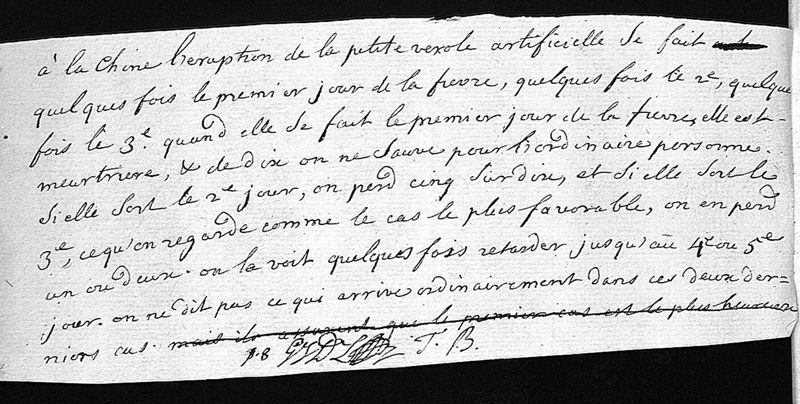 à la Chine l'eruption de la petite verole artificielle se fait
quelques fois le premier jour de la fievre, quelques fois le 2e, quelque
fois le 3e. quand elle se fait le premier jour de la fievre, elle est
meurtriere, & de dix on ne sauve pour l'ordinaire personne.
si elle sort le 2e jour, on perd cinq sur dix, et si elle sort le
3e, ce qu'on regarde comme le cas le plus favorable, on en perd
un ou deux. on la voit quelques fois retarder jusqu'au 4e ou 5e
jour. on ne dit pas ce qui arrive ordinairement dans ces deux der=
niers cas. mais ils assurent que le premier cas est le plus heureux
p. 8 T. B.